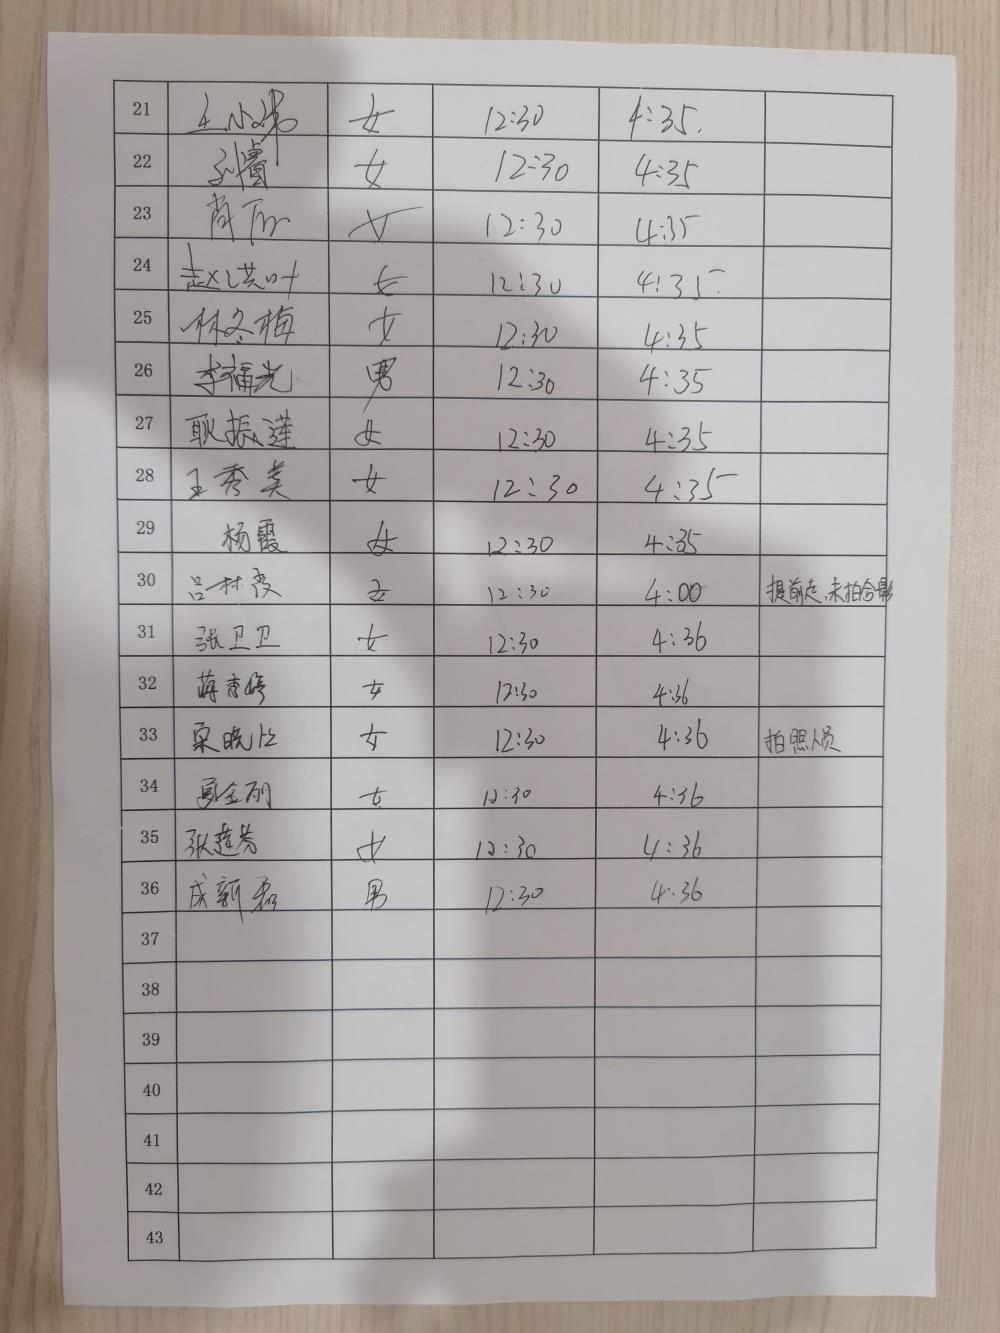 21 王小娣 女 12:30 4:35.
22 刘睿 女 12:30 4:35
23 肖 女 12:30 4:35
24 赵洪叶 女 12:30 4:35.
25 林冬梅 女 12:30 4:35
26 李福光 男 12:30 4:35
27 耿振莲 女 12:30 4:35
28 王秀美 女 12:30 4:35
29 杨霞 女 12:30 4:35
30 吕林霞 女 12:30 4:00 提前走,未拍合影
31 张卫卫 女 12:30 4:36
32 蒋秀 女 12:30 4:36
33 栗晓 女 12:30 4:36 拍照人员
34 金丽 女 12:30 4:36
35 张莲芳 女 12:30 4:36
36 成新磊 男 12:30 4:36
37
38
39
40
41
42
43